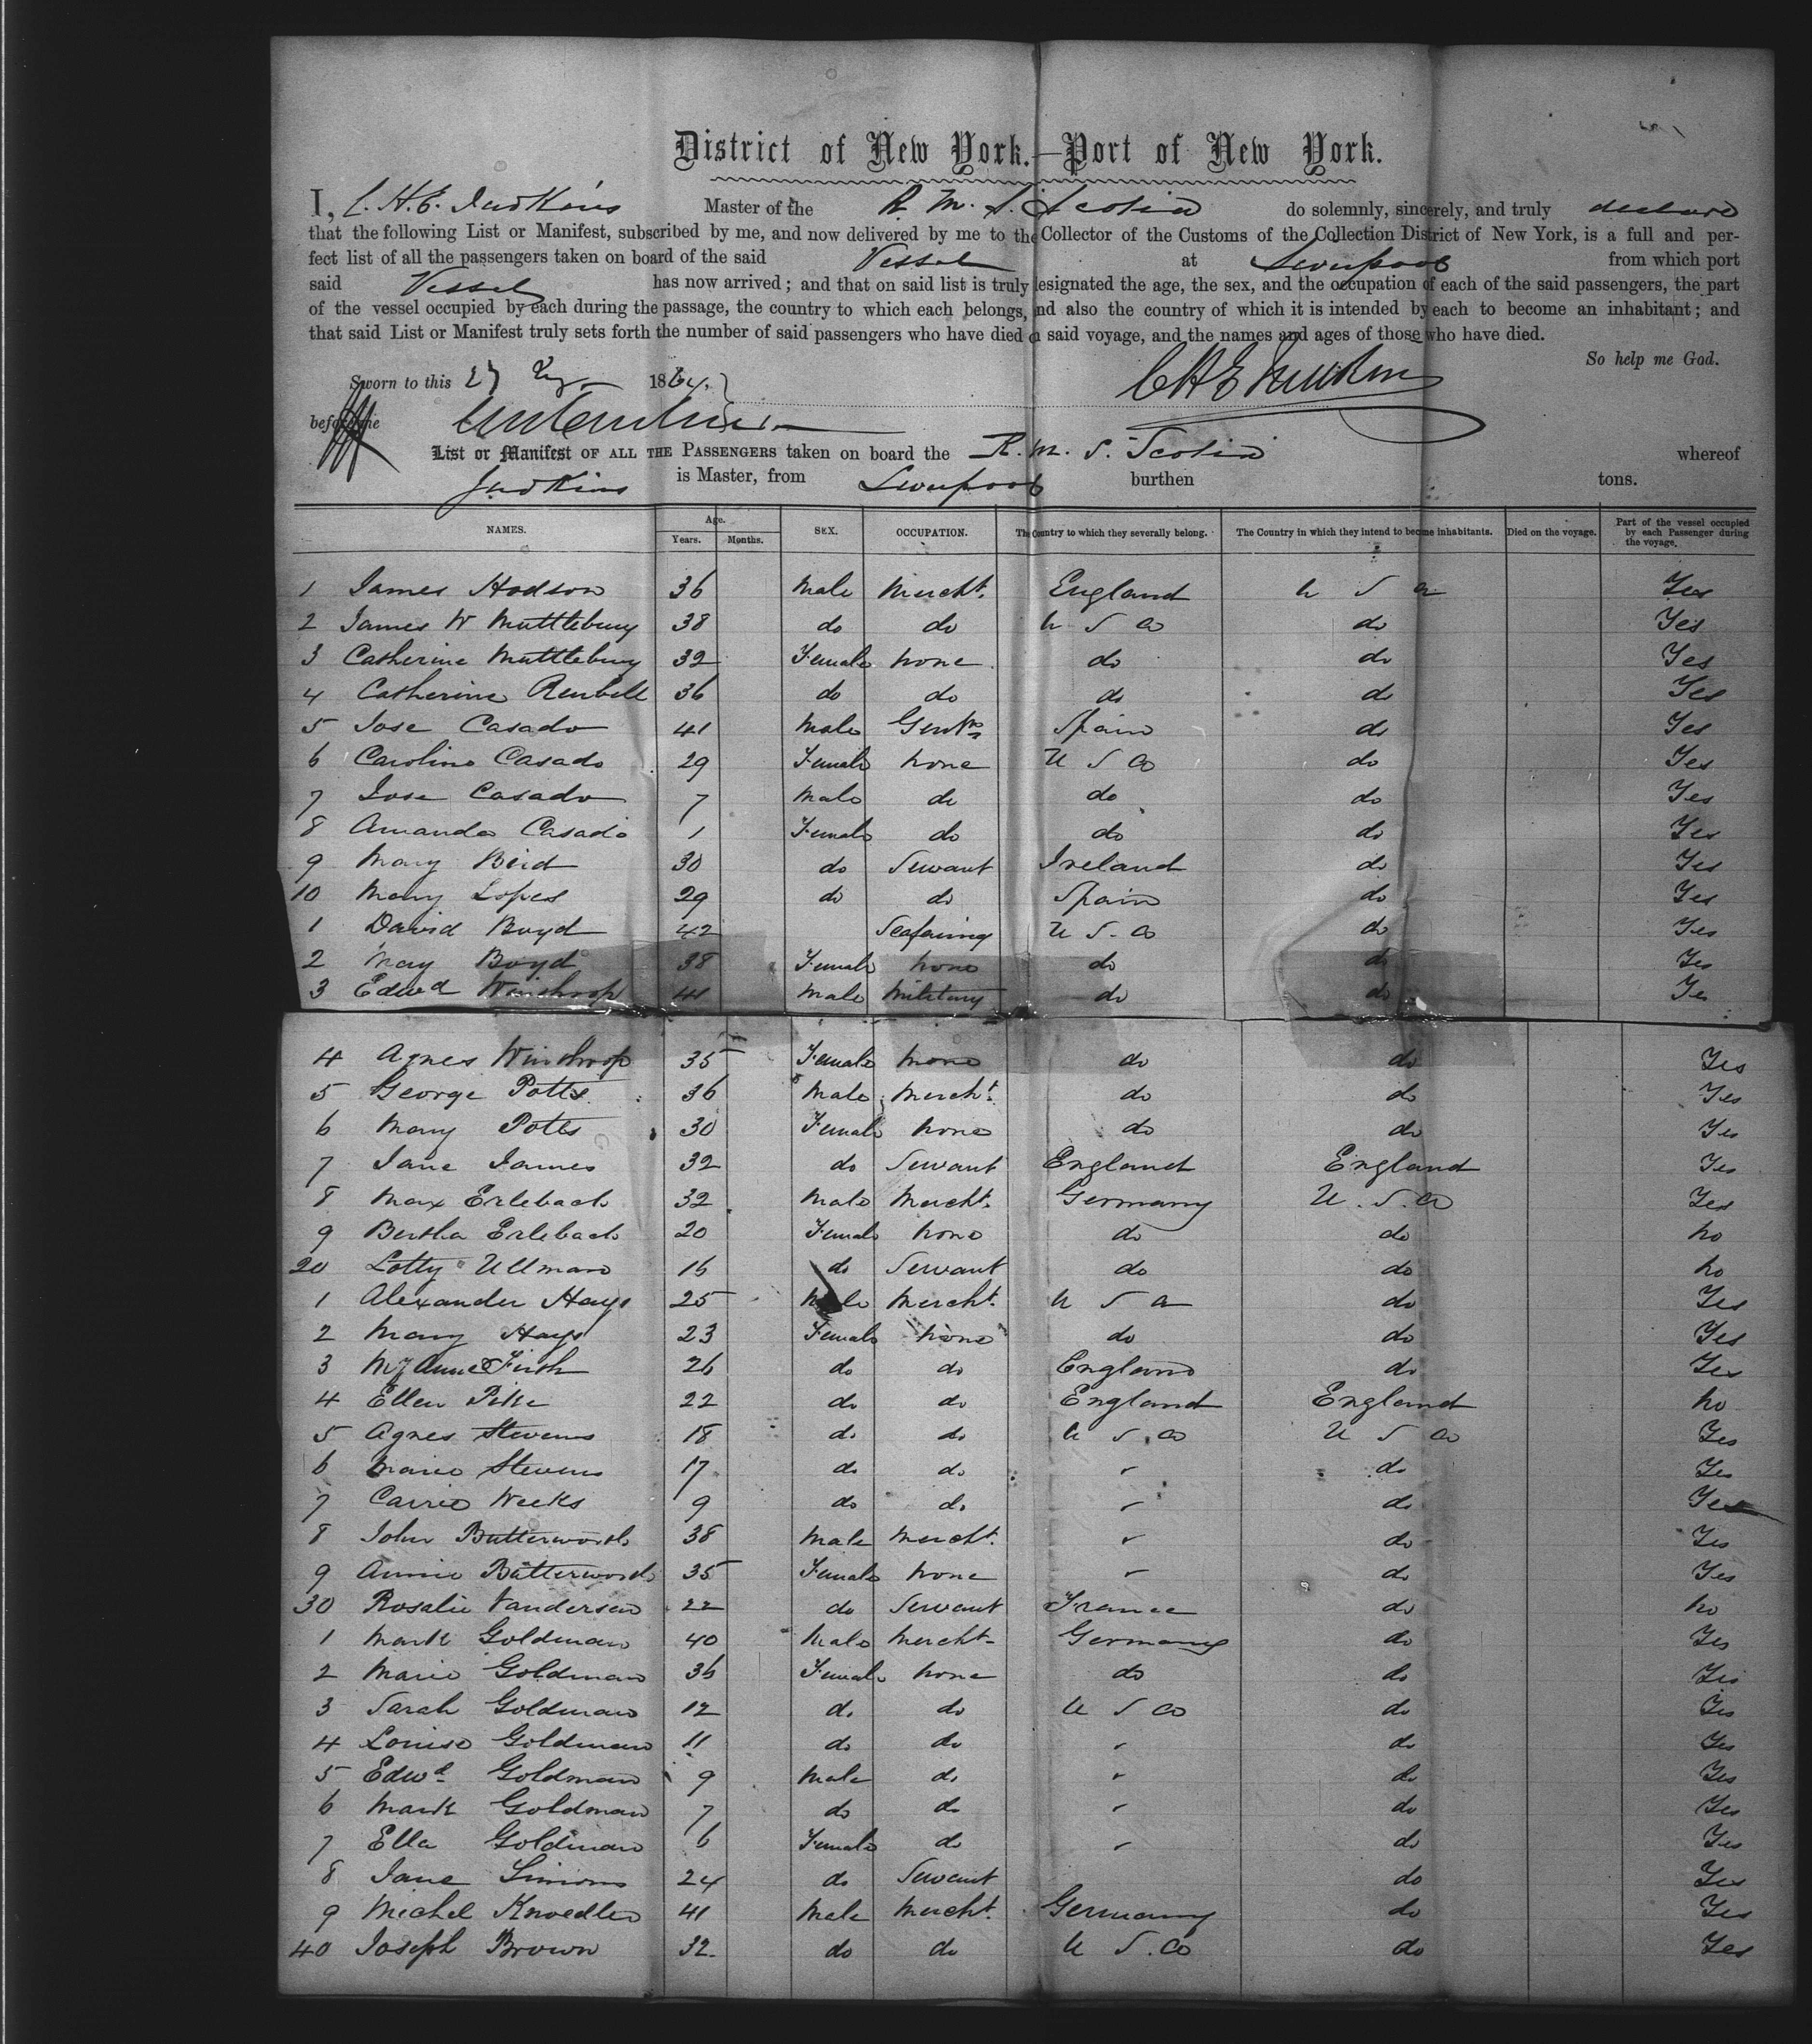 District of New York.—Port of New York.
I, C. H. E. Judkins Master of the R. M. S. Scotia do solemnly, sincerely, and truly declare
that the following List or Manifest, subscribed by me, and now delivered by me to the Collector of the Customs of the Collection District of New York, is a full and per-
fect list of all the passengers taken on board of the said Vessel at Liverpool from which port
said Vessel has now arrived; and that on said list is truly designated the age, the sex, and the occupation of each of the said passengers, the part
of the vessel occupied by each during the passage, the country to which each belongs, and also the country of which it is intended by each to become an inhabitant; and
that said List or Manifest truly sets forth the number of said passengers who have died on said voyage, and the names and ages of those who have died.
So help me God.
Sworn to this 27 1864. C H E Judkins
before me
List or Manifest OF ALL THE PASSENGERS taken on board the R. M. S. Scotia whereof
Judkins is Master, from Liverpool burthen tons.
NAMES. Age. Years. Months. SEX. OCCUPATION. The Country to which they severally belong. The Country in which they intend to become inhabitants. Died on the voyage. Part of the vessel occupied by each Passenger during the voyage.
1 James Hodson 36 Male Mercht. England U S A Yes
2 James W Muttlebury 38 do do U S A do Yes
3 Catherine Muttlebury 32 Female None do do Yes
4 Catherine Reubell 36 do do do do Yes
5 Jose Casado 41 Male Gentn Spain do Yes
6 Caroline Casado 29 Female None U S A do Yes
7 Jose Casado 7 Male do do do Yes
8 Amanda Casado 1 Female do do do Yes
9 Mary Beid 30 do Servant Ireland do Yes
10 Mary Lopes 29 do do Spain do Yes
1 David Boyd 42 Seafaring U S. A do Yes
2 May Boyd 38 Female None do do Yes
3 Edwd Winthrop 41 Male Military do do Yes
4 Agnes Winthrop 35 Female None do do Yes
5 George Potts 36 Male Mercht. do do Yes
6 Mary Potts 30 Female None do do Yes
7 Jane James 32 do Servant England England Yes
8 Max Erlebach 32 Male Mercht. Germany U. S. A Yes
9 Bertha Erlebach 20 Female None do do No
20 Lotty Ullman 16 do Servant do do No
1 Alexander Hays 25 Male Mercht. U S A do Yes
2 Mary Hays 23 Female None do do Yes
3 My Anne Firth 26 do do England do Yes
4 Ellen Pike 22 do do England England No
5 Agnes Stevens 18 do do U S. A U S A Yes
6 Marie Stevens 17 do do " do Yes
7 Carrie Weeks 9 do do " do Yes
8 John Butterworth 38 Male Mercht. " do Yes
9 Annie Butterworth 35 Female None " do Yes
30 Rosalie Vandersen 22 do Servant France do No
1 Mark Goldman 40 Male Mercht Germany do Yes
2 Marie Goldman 36 Female None do do Yes
3 Sarah Goldman 12 do do U S A do Yes
4 Louise Goldman 11 do do " do Yes
5 Edwd Goldman 9 Male do " do Yes
6 Mark Goldman 7 do do " do Yes
7 Ella Goldman 6 Female do " do Yes
8 Jane Simons 24 do Servant do Yes
9 Michel Knoedler 41 Male Mercht. Germany do Yes
40 Joseph Brown 32 do do U S. A do Yes